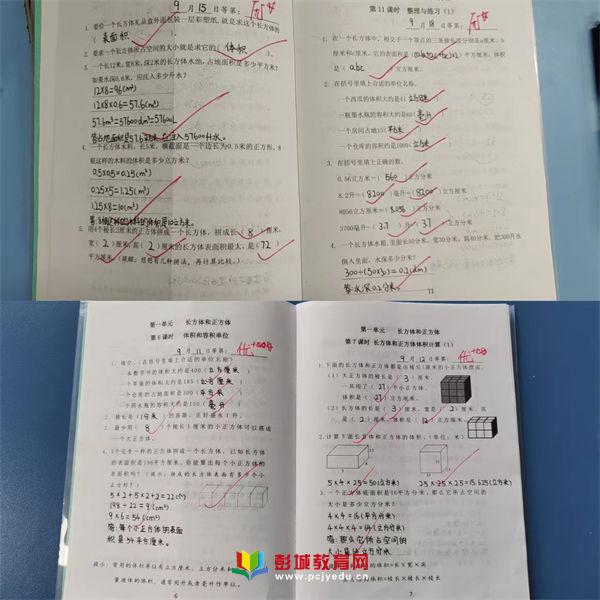 9 月 15 日等第:
1. 要给一个长方体礼品盒外面包装一层彩塑纸,就是求这个长方体的
( 表面积 )。
2. 要求一个长方体所占空间的大小就是求它的( 体积 )。
3. 一个长12米,宽8米,深2米的长方体水池,占地面积是多少平方米?
如要水深0.6米,应注入多少升水?
12×8=96(m²)
12×8×0.6=57.6(m³)
57.6m³=57600dm³=57600L
4. 一个长方体木料,长5米,横截面是一个边长为0.5米的正方形。8
根这样的木料的体积是多少立方米?
0.5×0.5=0.25(m²)
0.25×5=1.25(m³)
1.25×8=10(m³)
5. 用4个棱长2厘米的正方体拼成一个长方体,拼成长( 8 )厘米,
宽( 2 )厘米,高( 2 )厘米的长方体表面积最大,是( 72 )
平方厘米。(提醒:想想有几种拼法,再计算比较。)
第11课时 整理与练习(1)
9 月 18 日等第:
1. 在一个长方体中,相交于一个顶点的三条棱长度分别是a厘米、b
厘米和c厘米。它的表面积是( )平方厘米,体积
是( abc )立方厘米。
2. 在括号里填上合适的单位名称。
一个西瓜的体积大约是4( )
一瓶墨水瓶的容积大约是60( 毫升 )
一个房间占地15( 平方米 )
一个仓库的容积约是1000( 立方米 )
3. 在括号里填上正确的数。
0.56立方米=( 560 )立方分米
8.2升=( 8200 )毫升=( 8200 )立方厘米
3700毫升=( 3.7 )升=( 3.7 )立方分米
4. 一个长方体水箱,里面长50分米,宽30分米,高40分米。把300升水
倒入里面,水深多少分米?
300÷(50×30)=0.2(dm)
答:水深0.2分米。
11
第一单元 长方体和正方体
第 6 课时 体积和容积单位
9 月 11 日等第:
1. 填空。(在括号里填上合适的单位名称)
一本数学书的体积大约是400( 立方厘米 )
一个苹果的体积大约是185( 立方厘米 )
一个仓库的占地面积是300( 平方米 )
一个药水瓶的容积大约是150( 毫升 )
2. 棱长是( 1分米 )的容器,正好盛水1升。
3. 最少用( 8 )个棱长1厘米的小正方体可以搭成
一个大正方体。
4. 5个完全一样的正方体拼成一个长方体,已知长方体
的表面积是198平方厘米。你能算出每个小正方体的
表面积吗?(提示:拼成的长方体表面有多少个小
正方形?)
5×2+5×2+2=22(个)
198÷22=9(cm²)
9×6=54(cm²)
答:每个小正方体的表面
积是54平方厘米。
提示:常用的体积单位有立方厘米、立方分米和立方米。计
量液体的体积,通常用升或者毫升作单位。
6
第一单元 长方体和正方体
第 7 课时 长方体和正方体体积计算(1)
9 月 12 日等第:
1. 下面的长方体和正方体都是由棱长1厘米的小正方体摆成。
(1) 大正方体的棱长是( 3 )厘米,
一共用了( 27 )个小正方体,
体积是( 27 )立方厘米。
(2) 长方体的长是( 3 )厘米,宽是( 2 )厘米,高
是( 2 )厘米,体积是( 12 )立方厘米。
2. 计算下面长方体和正方体的体积。(单位:米)
5×4×2.5=50(立方米)
2.5×2.5×2.5=15.625(立方米)
3. 一个正方体底面积是16平方分米,那么它所占空间的
大小是多少立方分米?
4×4=16(平方分米)
4×4×4=64(立方分米)
答:那么它所占空间的
大小是64立方分米
长方体的体积=长×宽×高
棱长×棱长×棱长
7
彭城教育网
www.pcjyedu.cn